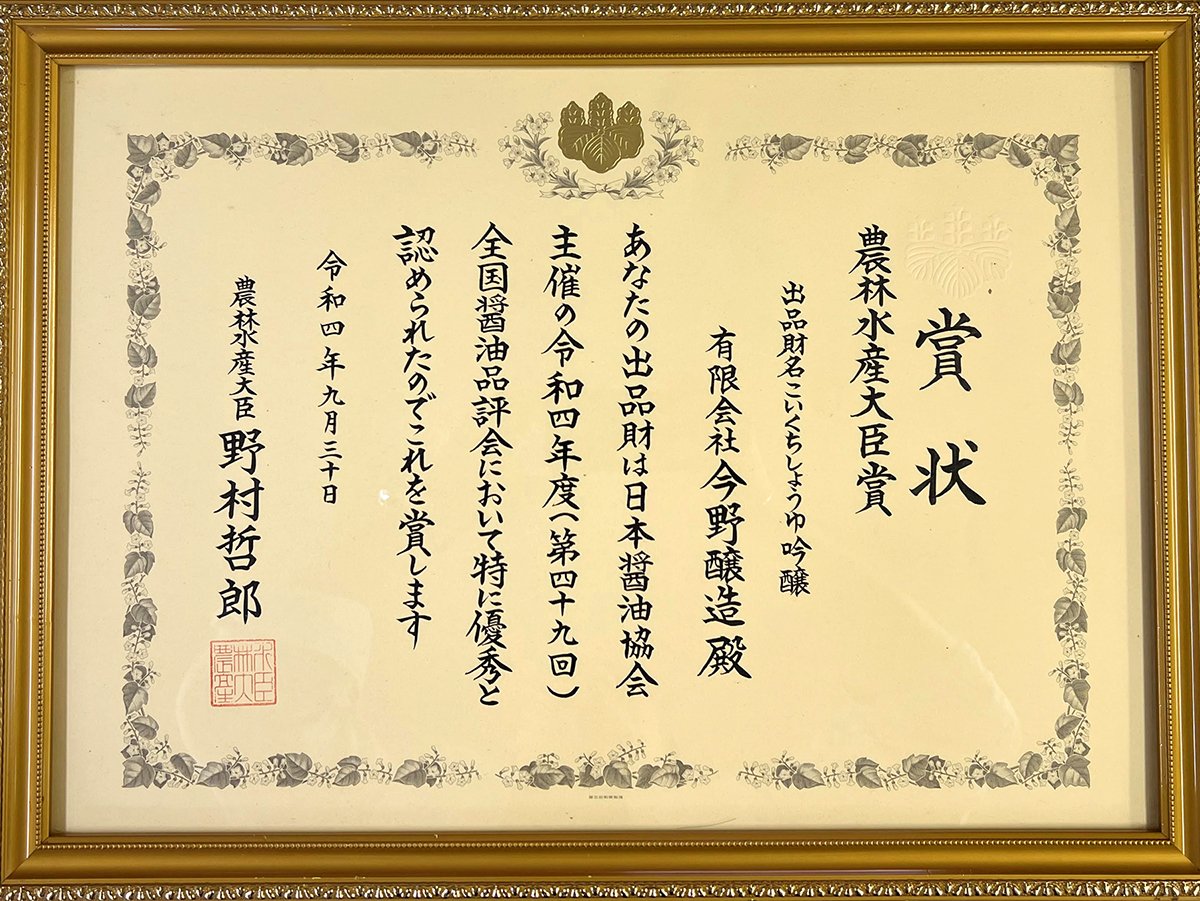 賞状
農林水産大臣賞
出品財名こいくちしょうゆ吟醸
有限会社今野醸造殿
あなたの出品財は日本醤油協会
主催の令和四年度(第四十九回)
全国醤油品評会において特に優秀と
認められたのでこれを賞します
令和四年九月三十日
農林水産大臣 野村哲郎